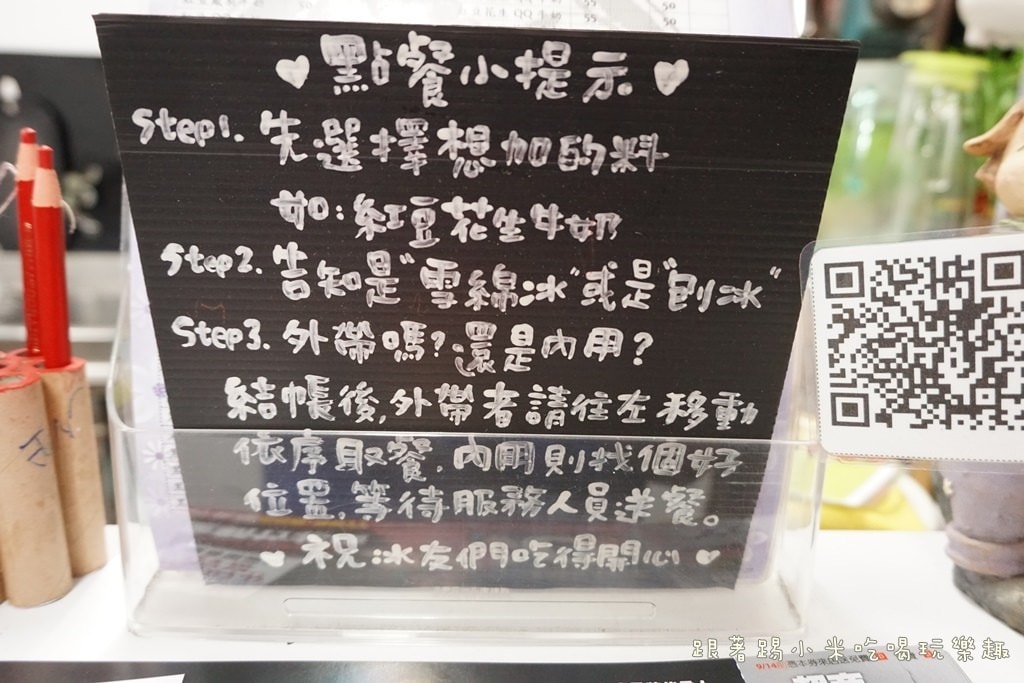 QQ牛奶 55 50
花生QQ牛奶 55 50
♥點餐小提示♥
Step1. 先選擇想加的料
如:紅豆花生牛奶
Step2. 告知是"雪綿冰"或是"刨冰"
Step3. 外帶嗎?還是內用?
結帳後,外帶者請往左移動
依序取餐.內用則找個好
位置,等待服務人員送餐。
♥祝冰友們吃得開心♥
跟著踢小米吃喝玩樂趣